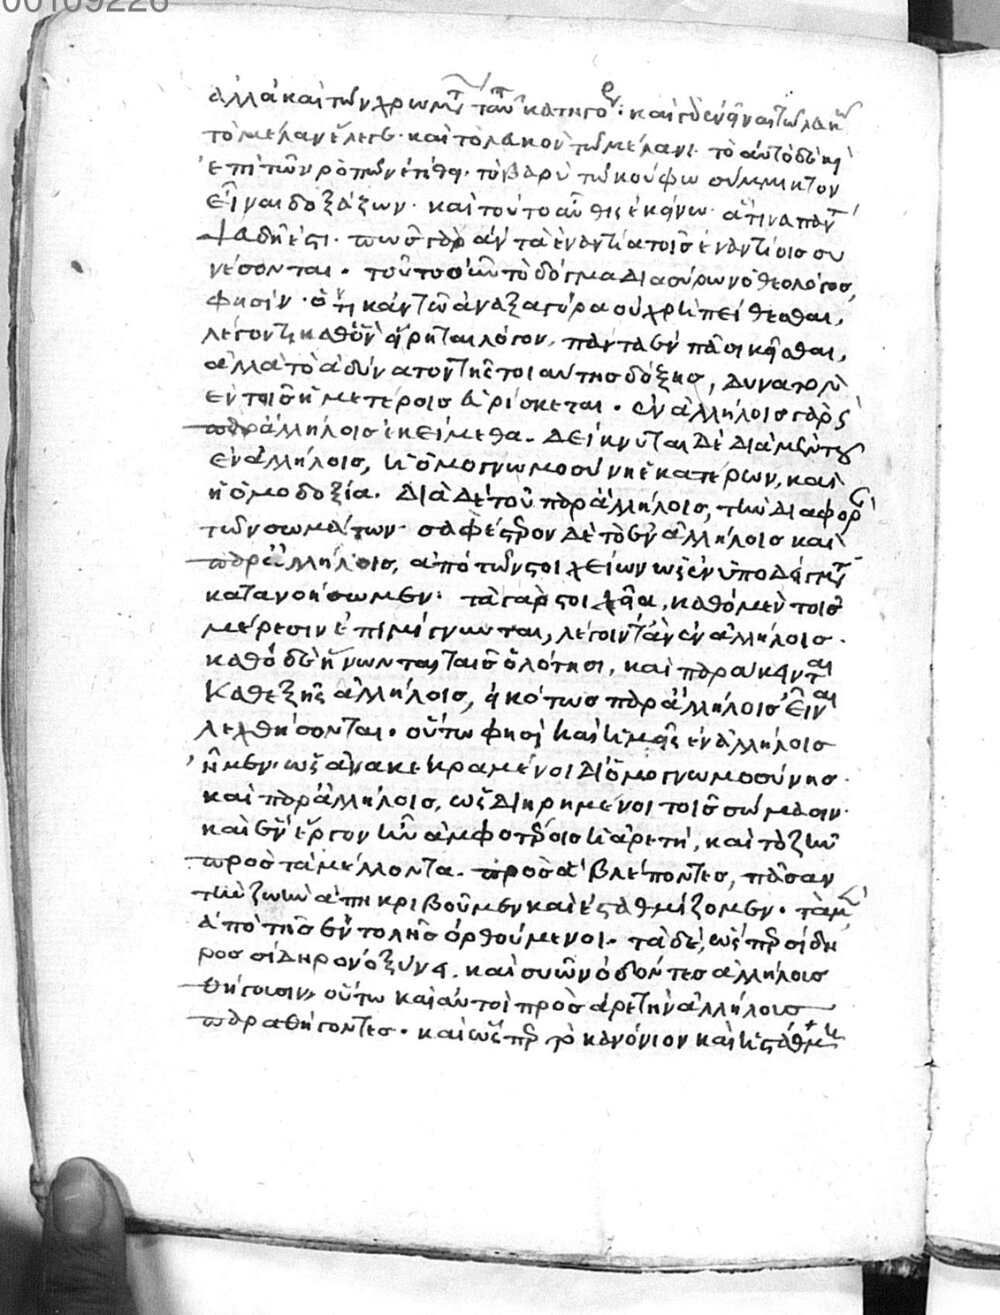 00109226
ἀλλὰ καὶ τῶν χρωμάτ ταυ κατηγο· καὶ
τὸ μέλαν ἔλεγε· καὶ τὸ λευκὸν τῷ μέλανι· τὸ αὐτὸ δὲ καὶ
ἐπὶ τῶν ῥοπῶν ἐτίθει· τὸ βαρὺ τῷ κούφω σύμμικτον
εἶναι δοξάζων· καὶ τοῦτο αὖθις ἐκείνω· ἅτινα παντ
ψευδῆ ἐστι· πῶς γὰρ ἂν τὰ ἐναντία τοῖς ἐναντίοις συ
νέσονται· τοῦτο οὖν τὸ δόγμα διασύρων ὁ θεολόγος,
φησὶν· ὅτι κἂν τῶ ἀναξαγόρα οὐ χρὴ πείθεσθαι,
λέγοντι καθὸν εἴρηται λόγον, πάντα ἐν πᾶσι κεῖσθαι,
ἀλλὰ τὸ ἀδύνατον τῆς τοιαύτης δόξης, δυνατὸν
ἐν τοῖς ἡμετέροις εὑρίσκεται· ἐν ἀλλήλοις γὰρ καὶ
παρ' ἀλλήλοις ἐκείμεθα· δείκνυται δὲ διὰ μὲν τοῦ
ἐν ἀλλήλοις, ἡ ὁμογνωμοσύνη ἑκατέρων, καὶ
ἡ ὁμοδοξία· διὰ δὲ τοῦ παρ' ἀλλήλοις, τὴν διαφορὰν
τῶν σωμάτων· σαφέστερον δὲ τὸ ἐν ἀλλήλοις καὶ
παρ' ἀλλήλοις, ἀπὸ τῶν στοιχείων ὡς ἐν ὑποδείγματι
κατανοήσωμεν· τὰ γὰρ στοιχεῖα, καθὸ μὲν τοῖς
μέρεσιν ἐπιμίγνωνται, λέγοιντ' ἂν ἐν ἀλλήλοις·
καθὸ δὲ ἥνωνται ταῖς ὁλότησι, καὶ παράκεινται
καθεξῆς ἀλλήλοις, εἰκότως παρ' ἀλλήλοις εἶναι
λεχθήσονται· οὕτω φησὶ καὶ ἡμεῖς ἐν ἀλλήλοις
ἦμεν· ὡς ἀνακεκραμένοι δι' ὁμογνωμοσύνης·
καὶ παρ' ἀλλήλοις, ὡς διῃρημένοι τοῖς σώμασιν·
καὶ ἓν ἔργον ἦν ἀμφοτέροις ἡ ἀρετή, καὶ τὸ ζῆν
πρὸς τὰ μέλλοντα· πρὸς ἃ βλέποντες, πᾶσαν
τὴν ζωὴν ἀπηκριβοῦμεν καὶ ἐσταθμίζομεν· τὰ μὲν
ἀπὸ τῆς ἐντολῆς ὀρθούμενοι· τὰ δὲ, ὥσπερ σίδη
ρος σίδηρον ὀξύνει, καὶ συῶν ὀδόντες ἀλλήλοις
θήγουσιν, οὕτω καὶ αὐτοὶ πρὸς ἀρετὴν ἀλλήλους
παραθήγοντες· καὶ ὥσπερ τὸ κανόνιον καὶ ἡ στάθμη